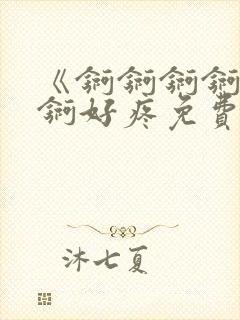 《锕锕锕锕
锕好疼免費
沐七夏